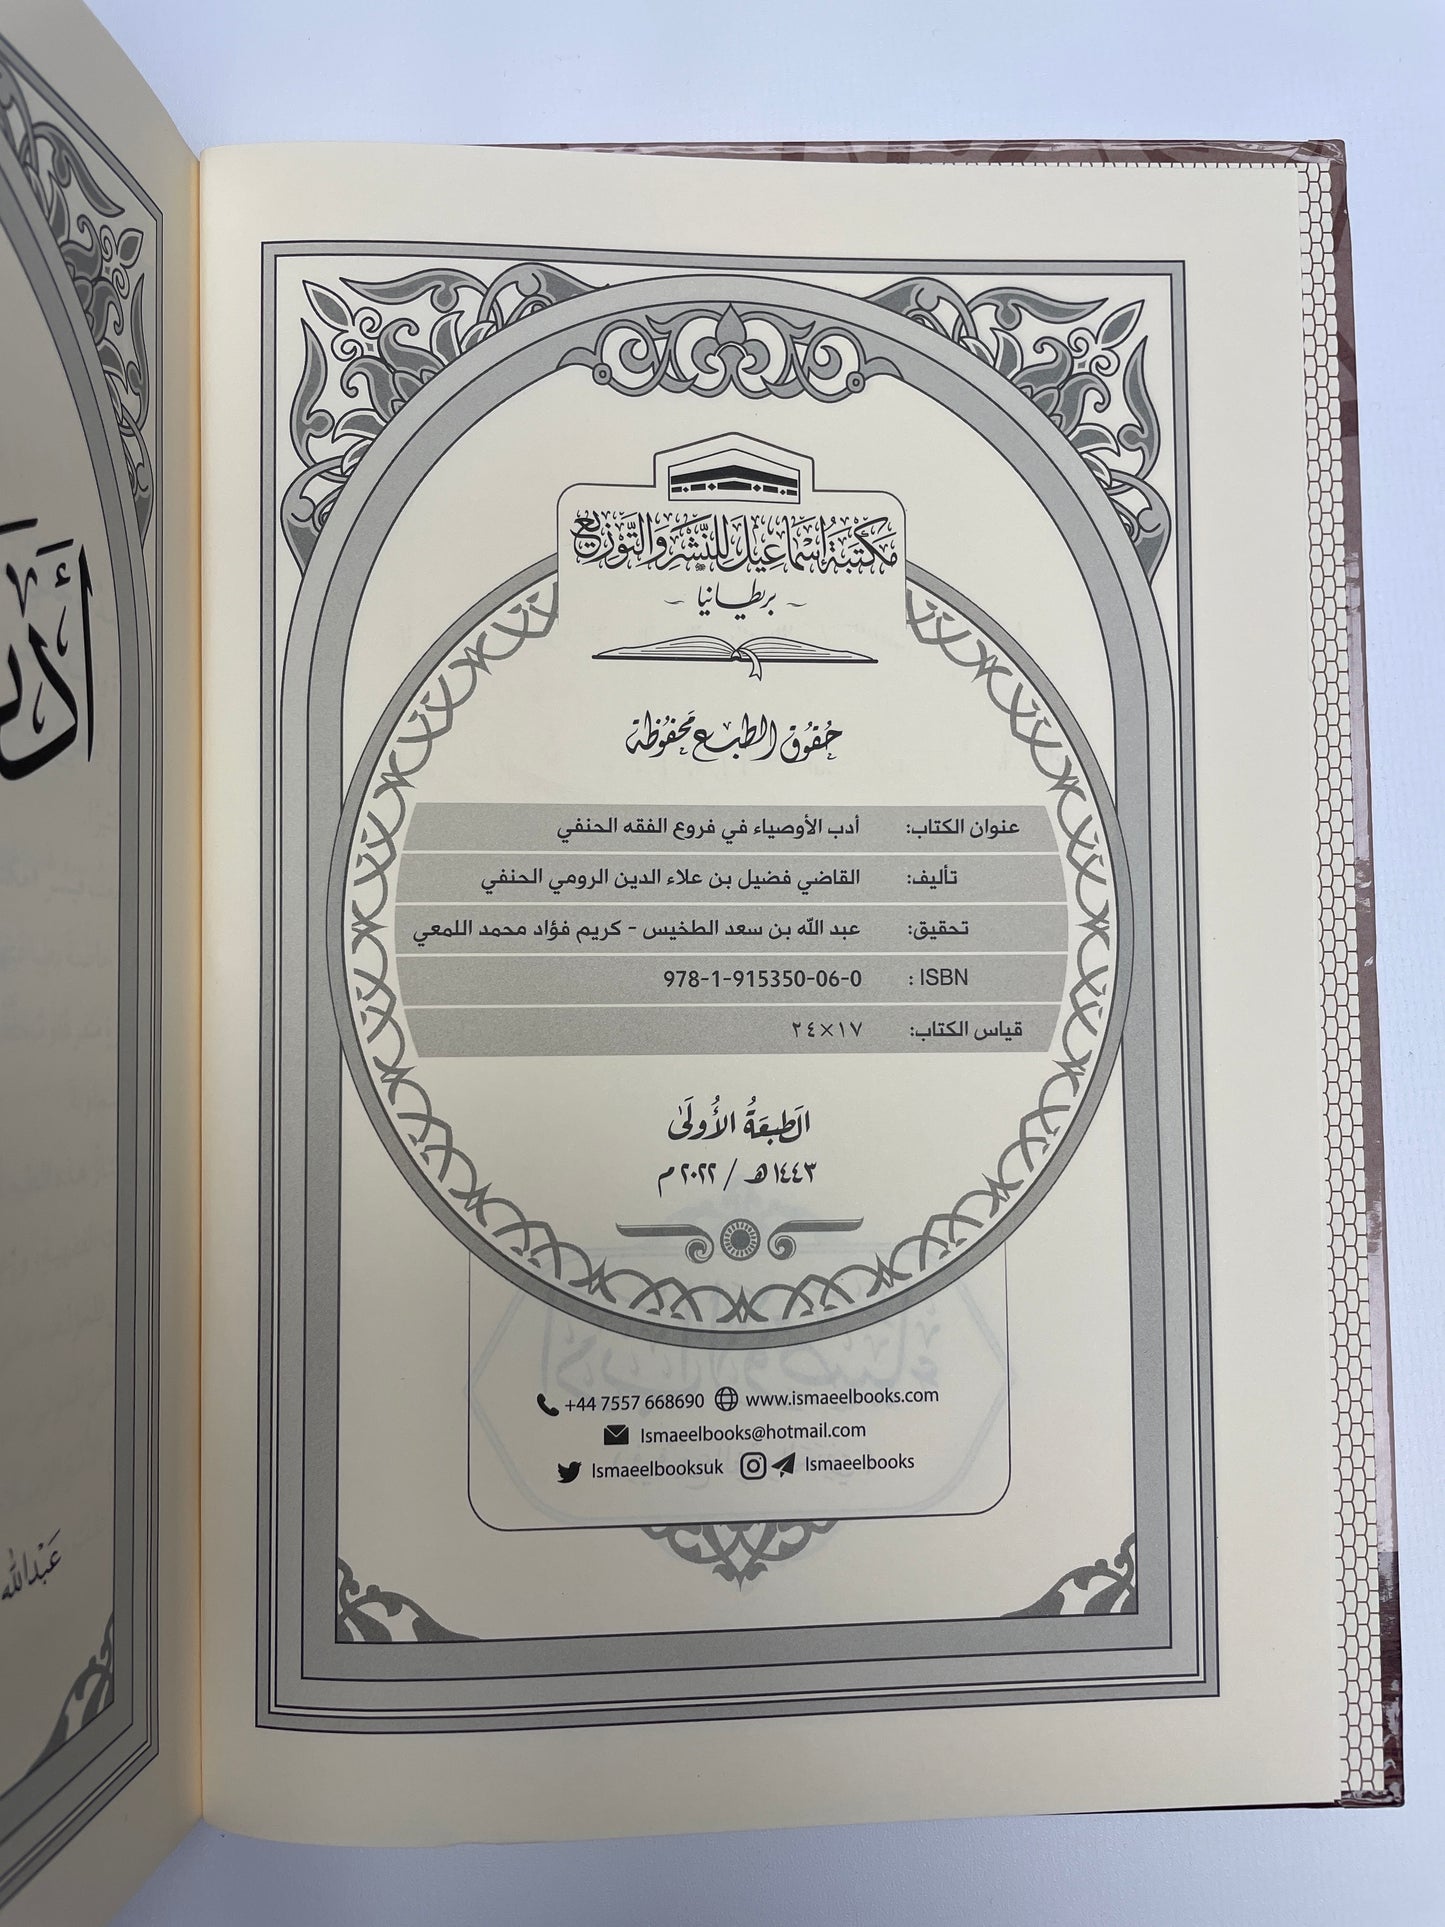 مَكتَبَةُ إسْمَاعِيلَ لِلنَّشْرِ وَالتَّوْزِيعِ
- بريطانيا -
حُقُوق الطبع مَحفُوظة
عنوان الكتاب: أدب الأوصياء في فروع الفقه الحنفي
تأليف: القاضي فضيل بن علاء الدين الرومي الحنفي
تحقيق: عبد الله بن سعد الطخيس - كريم فؤاد محمد اللمعي
ISBN : 978-1-915350-06-0
قياس الكتاب: ١٧×٢٤
الطبعَةُ الأُولَىٰ
١٤٤٣ هـ / ٢٠٢٢ م
+44 7557 668690 www.ismaeelbooks.com
Ismaeelbooks@hotmail.com
Ismaeelbooksuk Ismaeelbooks
عَبْدالله